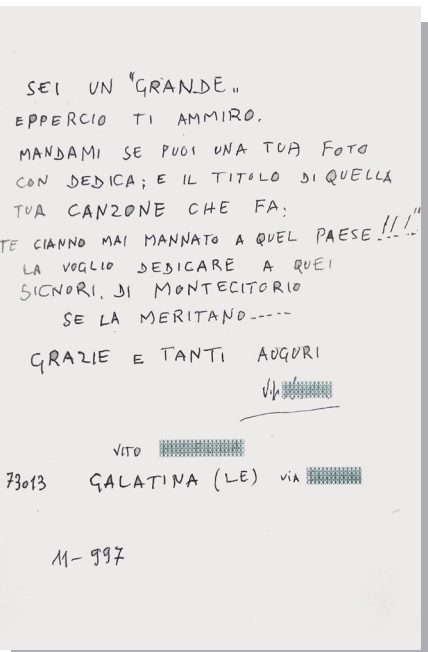 SEI UN "GRANDE"
EPPERCIO TI AMMIRO.
MANDAMI SE PUOI UNA TUA FOTO
CON DEDICA; E IL TITOLO DI QUELLA
TUA CANZONE CHE FA:
TE CIANNO MAI MANNATO A QUEL PAESE!!!"
LA VOGLIO DEDICARE A QUEI
SIGNORI. DI MONTECITORIO
SE LA MERITANO-----
GRAZIE E TANTI AUGURI
VITO
73013 GALATINA (LE) VIA
11-997